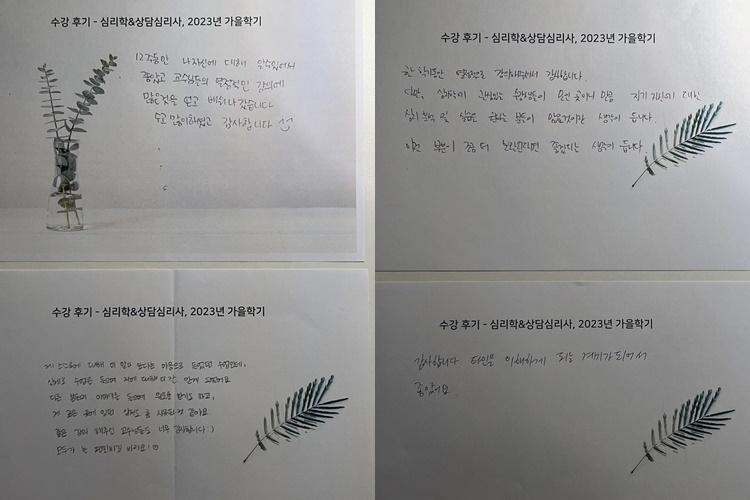 수강 후기 - 심리학&상담심리사, 2023년 가을학기
12주동안 나자신에 대해 알수있어서
좋았고 교수님들의 열정적인 강의에
많은것을 얻고 배워나갔습니다
수고 많이하셨고 감사합니다
수강 후기 - 심리학&상담심리사, 2023년 가을학기
한 학기동안 열정으로 강의해주셔서 감사합니다.
다만, 심리학에 관심있는 분들이 모인 곳이니 만큼 자기 자신에 대한
심리 분석 및 실습을 원하는 분들이 많을것이란 생각이 듭니다.
이런 부분이 조금 더 보완된다면 좋겠다는 생각이 듭니다.
수강 후기 - 심리학&상담심리사, 2023년 가을학기
제 스스로에 대해 더 알고 싶다는 마음으로 듣게된 수업인데,
실제로 수업을 들으며 저에 대해 더 잘 알게 되었어요
다른 분들의 이야기를 들으며 위로를 받기도 하고,
제 굳은 몸에 있던 상처도 좀 치유된것 같아요
좋은 강의 해주신 교수님들도 너무 감사합니다 :)
모두가 늘 평안하길 바라요!
수강 후기 - 심리학&상담심리사, 2023년 가을학기
감사합니다 타인을 이해하게 되는 계기가 되어서
좋았어요